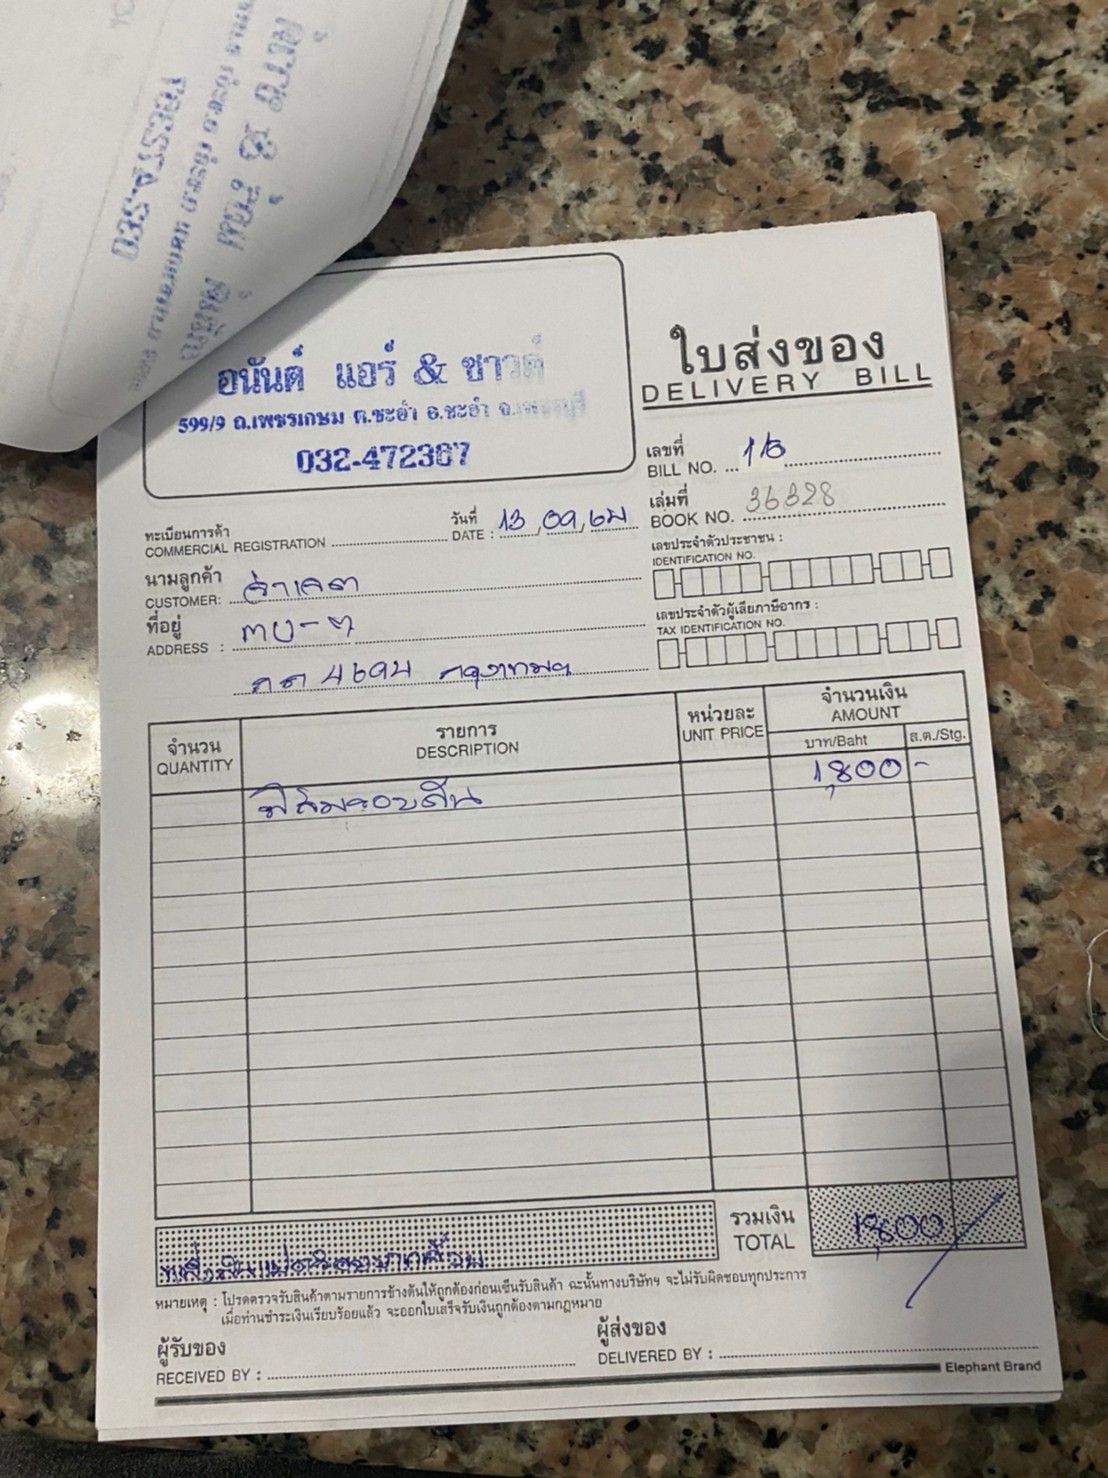 อนันต์ แอร์ & ซาวด์
599/9 ถ.เพชรเกษม ต.ชะอำ อ.ชะอำ จ.เพชรบุรี
032-472367
ใบส่งของ
DELIVERY BILL
เลขที่
BILL NO. 116
เล่มที่
BOOK NO. 36328
ทะเบียนการค้า
COMMERCIAL REGISTRATION
วันที่
DATE : 13, 09,
เลขประจำตัวประชาชน :
IDENTIFICATION NO.
นามลูกค้า
CUSTOMER:
ที่อยู่
ADDRESS :
กรุงเทพฯ
เลขประจำตัวผู้เสียภาษีอากร :
TAX IDENTIFICATION NO.
จำนวน
QUANTITY
รายการ
DESCRIPTION
หน่วยละ
UNIT PRICE
จำนวนเงิน
AMOUNT
บาท/Baht
ส.ต./Stg.
ฟิล์มรอบคัน 1,800 -
รวมเงิน
TOTAL
1,800
หนึ่งพันแปดร้อยบาทถ้วน
หมายเหตุ : โปรดตรวจรับสินค้าตามรายการข้างต้นให้ถูกต้องก่อนเซ็นรับสินค้า ฉะนั้นทางบริษัทฯ จะไม่รับผิดชอบทุกประการ
เมื่อท่านชำระเงินเรียบร้อยแล้ว จะออกใบเสร็จรับเงินถูกต้องตามกฎหมาย
ผู้รับของ
RECEIVED BY :
ผู้ส่งของ
DELIVERED BY :
Elephant Brand